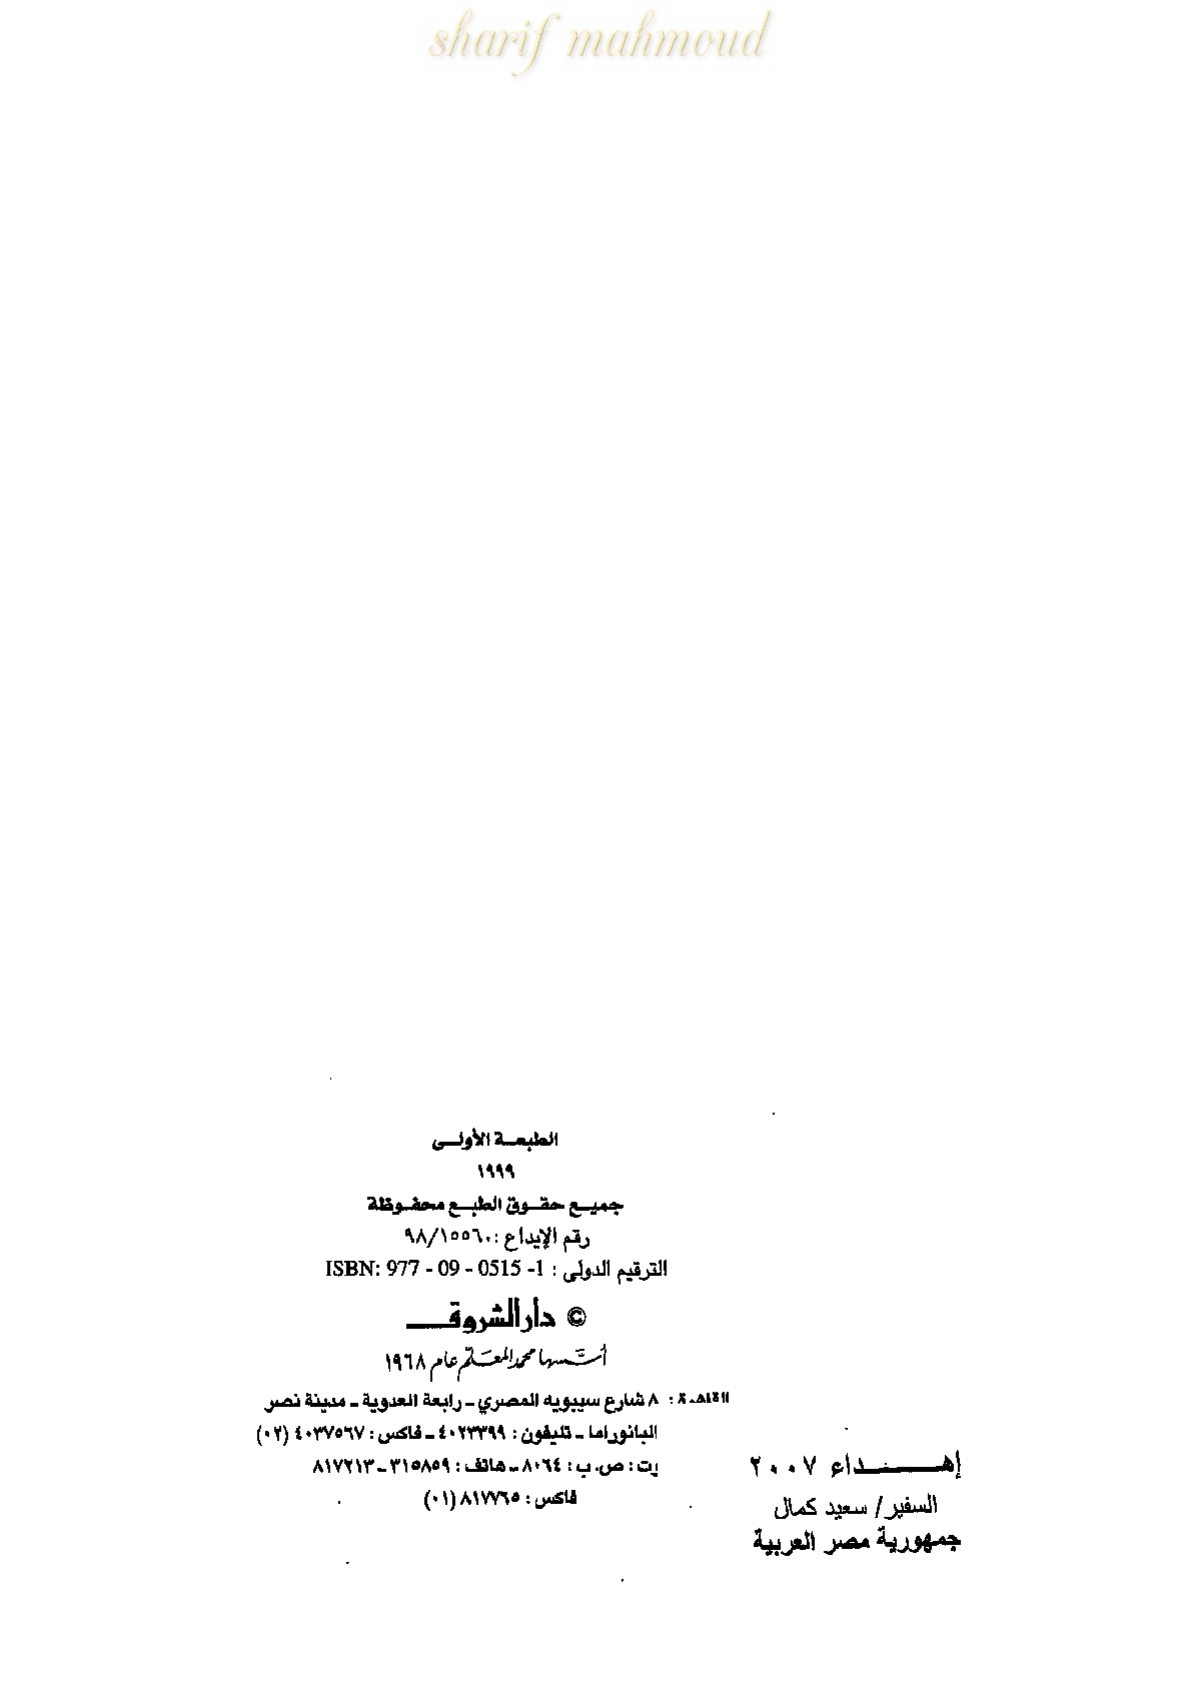 sharif mahmoud
الطبعة الأولى
١٩٩٩
جميع حقوق الطبع محفوظة
رقم الإيداع : ٩٨/١٥٥٦٠
الترقيم الدولى : ISBN: 977 - 09 - 0515 -1
© دار الشروق
أسسها محمد المعلم عام ١٩٦٨
القاهرة : ٨ شارع سيبويه المصري ـ رابعة العدوية ـ مدينة نصر
البانوراما ـ تليفون : ٤٠٢٣٣٩٩ ـ فاكس : ٤٠٣٧٥٦٧ (٠٢)
رت : ص. ب : ٨٠٦٤ ـ هاتف : ٣١٥٨٥٩ ـ ٨١٧٢١٣
فاكس : ٨١٧٧٦٥ (٠١)
إهداء ٢٠٠٧
السفير/ سعيد كمال
جمهورية مصر العربية